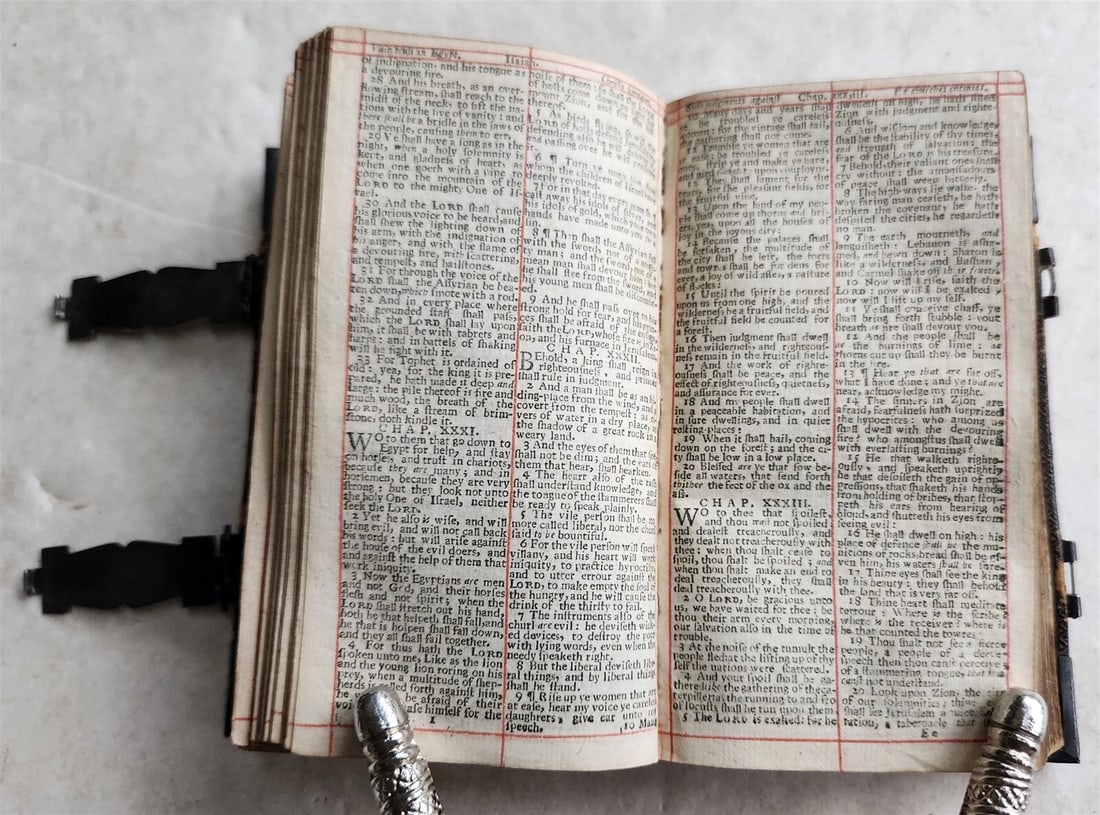 Vain truſt in Egypt. Iſaiah.
of indignation, and his tongue as
a devouring fire.
28 And his breath, as an over-
flowing ſtream, ſhall reach to the
midſt of the neck, to ſift the na-
tions with the ſive of vanity: and
there ſhall be a bridle in the jaws of
the people, cauſing them to err.
29 Ye ſhall have a ſong as in the
night, when a holy ſolemnity is
kept, and gladneſs of heart, as
when one goeth with a pipe to
come into the mountain of the
LORD to the mighty One of Iſ-
rael.
30 And the LORD ſhall cauſe
his glorious voice to be heard, and
ſhall ſhew the lighting down of
his arm, with the indignation of
his anger, and with the flame of
a devouring fire, with ſcattering,
and tempeſt and hailſtones.
31 For through the voice of the
LORD ſhall the Aſſyrian be bea-
ten down, which ſmote with a rod.
32 And in every place where
the grounded ſtaff ſhall paſs,
which the LORD ſhall lay upon
him, it ſhall be with tabrets and
harps: and in battels of ſhaking
will he fight with it.
33 For Tophet is ordained of
old: yea, for the king it is pre-
pared, he hath made it deep and
large: the pile thereof is fire and
much wood, the breath of the
LORD, like a ſtream of brim-
ſtone, doth kindle it.
CHAP. XXXI.
WO to them that go down to
Egypt for help, and ſtay
on horſes, and truſt in chariots,
becauſe they are many; and in
horſemen, becauſe they are very
ſtrong: but they look not unto
the holy One of Iſrael, neither
ſeek the LORD.
2 Yet he alſo is wiſe, and will
bring evil, and will not call back
his words: but will ariſe againſt
the houſe of the evil doers, and
againſt the help of them that
work iniquity.
3 Now the Egyptians are men
and not God, and their horſes
fleſh and not ſpirit; when the
LORD ſhall ſtretch out his hand,
both he that helpeth ſhall fall, and
he that is holpen ſhall fall down,
and they all ſhall fail together.
4 For thus hath the LORD
ſpoken unto me, Like as the lion
and the young lion roaring on his
prey, when a multitude of ſhep-
herds is called forth againſt him,
he be afraid of their
voi aſe himſelf for the
noiſe of them: ſo ſhall the
of hoſts come down to
for mount Zion, and for the
thereof.
5 As birds
LORD of hoſts
defending alſo he will
and paſſing over he will
it.
6 ¶ Turn ye unto
whom the children of Iſrael
deeply revolted.
7 For in that day every man
caſt away his idols of ſilver,
his idols of gold, which your
hands have made unto you
8 ¶ Then ſhall the Aſſyrian fall
with the ſword, not of
ty man: and the ſword, not of
mean man ſhall devour him:
he ſhall flee from the ſword, and
his young men ſhall be diſcomfited.
9 And he ſhall paſs over to his
ſtrong hold for fear, and his prin-
ces ſhall be afraid of the enſign,
ſaith the LORD, whoſe fire is in
on, and his furnace in Jeruſalem.
CHAP. XXXII.
BEhold, a king ſhall reign in
righteouſneſs, and princes
ſhall rule in judgment.
2 And a man ſhall be as an hi-
ding-place from the wind, and a
covert from the tempeſt: as ri-
vers of water in a dry place, as
the ſhadow of a great rock in a
weary land.
3 And the eyes of them that ſee
ſhall not be dim; and the ears of
them that hear, ſhall hearken.
4 The heart alſo of the raſh
ſhall underſtand knowledge, and
the tongue of the ſtammerers ſhall
be ready to ſpeak plainly.
5 The vile perſon ſhall be no
more called liberal, nor the churl
ſaid to be bountiful.
6 For the vile perſon will ſpeak
villany, and his heart will work
iniquity, to practice hypocriſy,
and to utter errour againſt the
LORD, to make empty the ſoul of
the hungry, and he will cauſe the
drink of the thirſty to fail.
7 The inſtruments alſo of the
churl are evil: he deviſeth wick-
ed devices, to deſtroy the poor
with lying words, even when the
needy ſpeaketh right.
8 But the liberal deviſeth libe-
ral things, and by liberal things
ſhall he ſtand.
9 ¶ Riſe up ye women that are
at eaſe, hear my voice ye careleſs
daughters, give ear unto my
ſpeech.
10 Many
judgments againſt Chap. xxxiii. the churches enemies.
10 Many days and years ſhall
ye be troubled ye careleſs
women: for the vintage ſhall fail,
the gathering ſhall not come.
11 Tremble ye women that are
at eaſe; be troubled ye careleſs
ones, ſtrip ye and make ye bare,
and gird ſackcloth upon your loyns.
12 They ſhall lament for the
teats, for the pleaſant fields, for
the fruitful vine.
13 Upon the land of my peo-
ple ſhall come up thorns and bri-
ers, yea, upon all the houſes of
joy in the joyous city:
14 Becauſe the palaces ſhall
be forſaken, the multitude of
the city ſhall be left, the forts
and towrs ſhall be for dens for
ever, a joy of wild aſſes, a paſture
of flocks:
15 Until the ſpirit be poured
upon us from on high, and the
wilderneſs be a fruitful field, and
the fruitful field be counted for
a foreſt.
16 Then judgment ſhall dwell
in the wilderneſs, and righteouſ-
neſs remain in the fruitful field.
17 And the work of righte-
ouſneſs ſhall be peace, and the
effect of righteouſneſs, quietneſs,
and aſſurance for ever.
18 And my people ſhall dwell
in a peaceable habitation, and
in ſure dwellings, and in quiet
reſting-places:
19 When it ſhall hail, coming
down on the foreſt; and the ci-
ty ſhall be low in a low place.
20 Bleſſed are ye that ſow be-
ſide all waters, that ſend forth
thither the feet of the ox and the
aſs.
CHAP. XXXIII.
WO to thee that ſpoileſt,
and thou waſt not ſpoiled;
and dealeſt treacherouſly, and
they dealt not treacherouſly with
thee: when thou ſhalt ceaſe to
ſpoil, thou ſhalt be ſpoiled; and
when thou ſhalt make an end to
deal treacherouſly, they ſhall
deal treacherouſly with thee.
2 O LORD, be gracious unto
us, we have waited for thee: be
thou their arm every morning,
our ſalvation alſo in the time of
trouble.
3 At the noiſe of the tumult the
people fled: at the lifting up of thy
ſelf the nations were ſcattered.
4 And your ſpoil ſhall be ga-
thered like the gathering of the ca-
terpiller: as the running to and fro
of locuſts ſhall he run upon them.
5 The LORD is exalted: for he
dwelleth on high, he hath filled
Zion with judgment and righte-
ouſneſs.
6 And wiſdom and knowledge
ſhall be the ſtability of thy times,
and ſtrength of ſalvation: the
fear of the LORD is his treaſure.
7 Behold, their valiant ones ſhall
cry without: the ambaſſadours
of peace ſhall weep bitterly.
8 The high-ways lie waſte, the
way-faring man ceaſeth, he hath
broken the covenant, he hath
deſpiſed the cities, he regardeth
no man.
9 The earth mourneth, and
languiſheth: Lebanon is aſha-
med, and hewn down: Sharon is
like a wilderneſs; and Baſhan
and Carmel ſhake off their fruits.
10 Now will I riſe, ſaith the
LORD: now will I be exalted,
now will I lift up my ſelf.
11 Ye ſhall conceive chaff, ye
ſhall bring forth ſtubble: your
breath as fire ſhall devour you.
12 And the people ſhall be
as the burnings of lime: as
thorns cut up ſhall they be burnt
in the fire.
13 ¶ Hear ye that are far off,
what I have done; and ye that are
near, acknowledge my might.
14 The ſinners in Zion are
afraid, fearfulneſs hath ſurprized
the hypocrites: who among us
ſhall dwell with the devouring
fire? who amongſt us ſhall dwell
with everlaſting burnings?
15 He that walketh righte-
ouſly, and ſpeaketh uprightly,
he that deſpiſeth the gain of op-
preſſions, that ſhaketh his hands
from holding of bribes, that ſtop-
peth his ears from hearing of
bloud, and ſhutteth his eyes from
ſeeing evil:
16 He ſhall dwell on high: his
place of defence ſhall be the mu-
nitions of rocks, bread ſhall be gi-
ven him, his waters ſhall be ſure.
17 Thine eyes ſhall ſee the king
in his beauty: they ſhall behold
the land that is very far off.
18 Thine heart ſhall meditate
terrour; Where is the ſcribe?
where is the receiver? where is
he that counted the towres?
19 Thou ſhalt not ſee a fierce
people, a people of a deeper
ſpeech then thou canſt perceive;
of a ſtammering tongue, that thou
canſt not underſtand.
20 Look upon Zion, the city
of our ſolemnities: thine eyes
ſhall ſee Jeruſalem a quiet habi-
tation, a tabernacle that
Ee